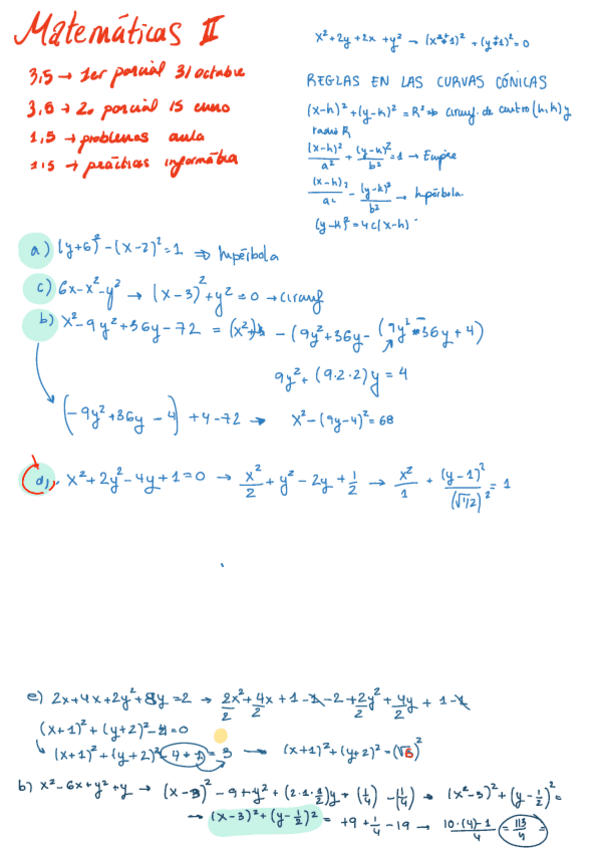 Matemáticas II
3,5 → 1er parcial 31 octubre
3,5 → 2o parcial 15 enero
1,5 → problemas aula
1,5 → prácticas informática
x² + 2y + 2x + y² → (x + 1)² + (y + 1)² = 0
REGLAS EN LAS CURVAS CÓNICAS
(x-h)² + (y-k)² = R² ⇒ circunf. de centro (h,k) y
radio R
(x-h)²/a² + (y-k)²/b² = 1 → Elipse
(x-h)²/a² - (y-k)²/b² → hipérbola
(y-k)² = 4c(x-h)
a) (y+6)² - (x-2)² = 1 ⇒ hipérbola
c) 6x - x² - y² → (x-3)² + y² = 0 → circunf
b) x² - 9y² + 36y - 72 = - (9y² + 36y - (9y² - 36y + 4)
9y² + (9·2·2)y = 4
(-9y² + 36y - 4) + 4 - 72 → x² - (9y-4)² = 68
d) x² + 2y² - 4y + 1 = 0 → x²/2 + y² - 2y + 1/2 → x²/1 + (y-1)²/(√1/2)² = 1
e) 2x + 4x + 2y² + 8y = 2 → 2x²/2 + 4x/2 + 1 - 1 - 2 + 2y²/2 + 4y/2 + 1 - 1
(x+1)² + (y+2)² = 0
(x+1)² + (y+2)² - 4 + 1 = 3 → (x+1)² + (y+2)² =
b) x² - 6x + y² + y → (x-3)² - 9 + y² + (2·1·1/2)y + (1/4) - (1/4) → (x²-3)² + (y-1/2)² =
→ (x-3)² + (y-1/2)² = +9 + 1/4 - 19 → 10·(4)-1/4 = 113/4 =